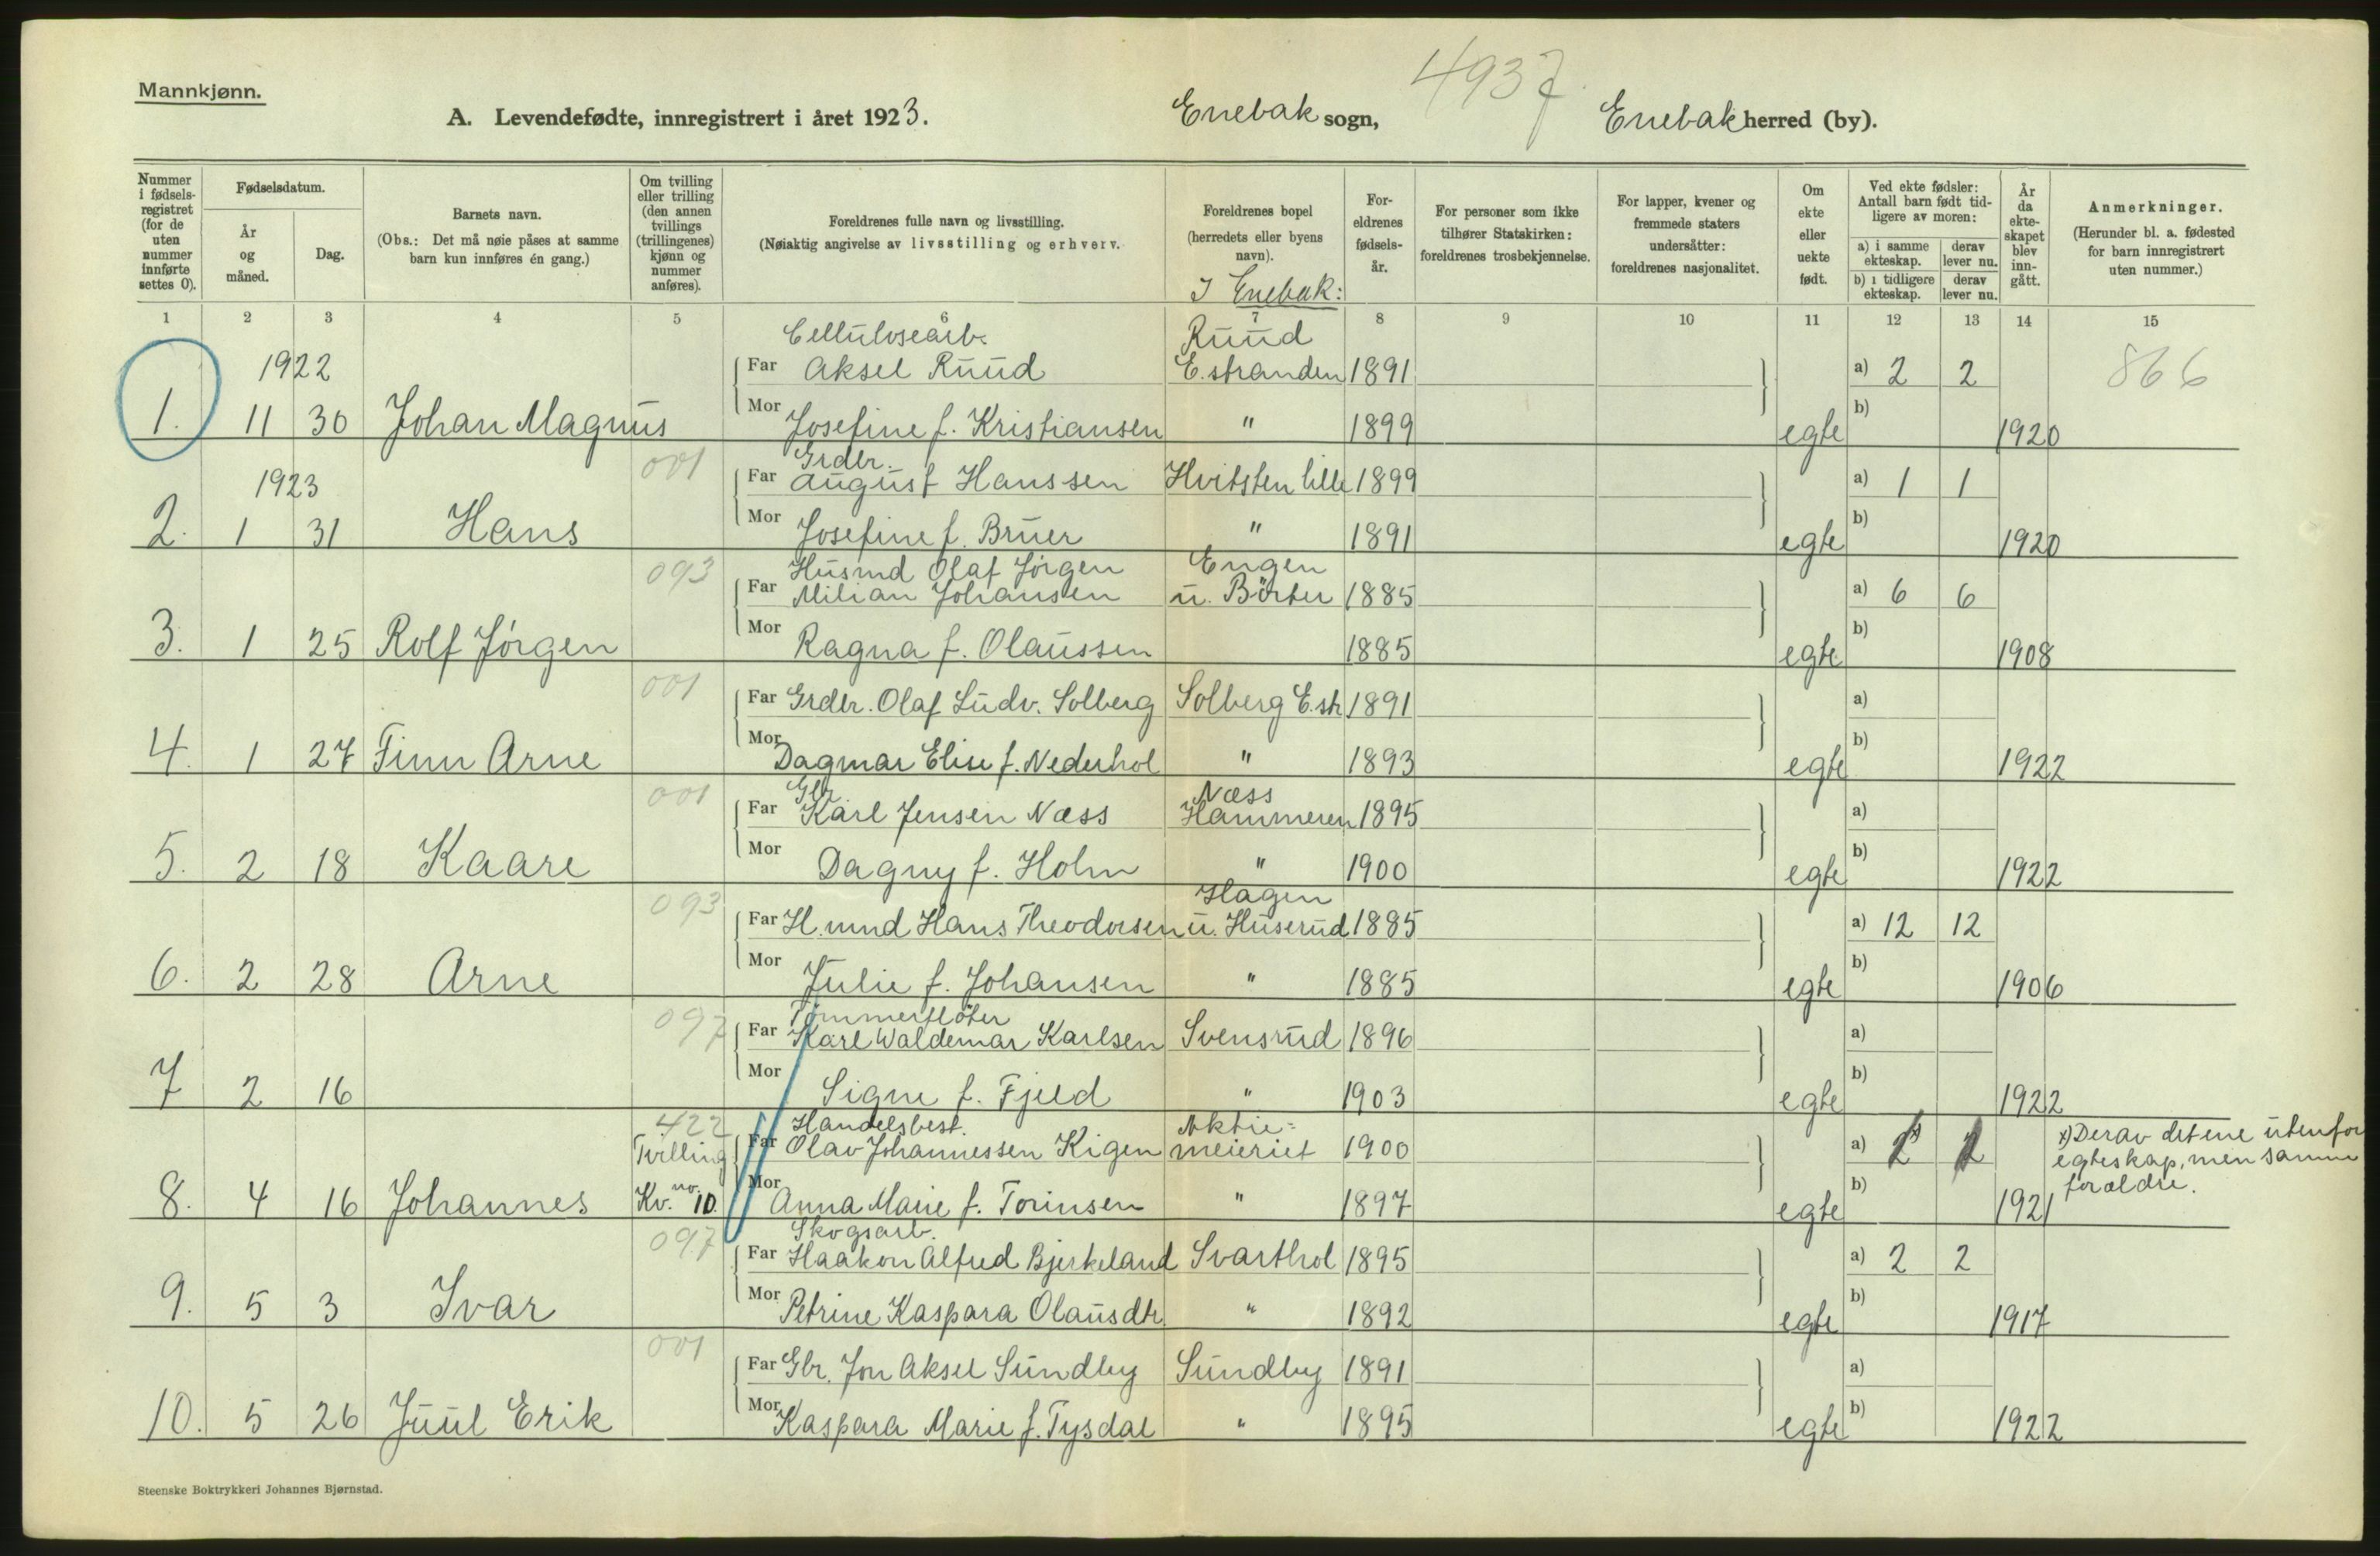 Mannkjønn.
4937
A. Levendefødte, innregistrert i året 1923. Enebak sogn, Enebak herred (by).
Nummer i fødsels-registret (for de uten nummer innførte settes 0).
Fødselsdatum.
År og måned.
Dag.
Barnets navn.
(Obs.: Det må nøie påses at samme barn kun innføres én gang.)
Om tvilling eller trilling (den annen tvillings (trillingenes) kjønn og nummer anføres).
Foreldrenes fulle navn og livsstilling.
(Nøiaktig angivelse av livsstilling og erhverv.
Foreldrenes bopel (herredets eller byens navn).
I Enebak:
For-eldrenes fødsels-år.
For personer som ikke tilhører Statskirken: foreldrenes trosbekjennelse.
For lapper, kvener og fremmede staters undersåtter: foreldrenes nasjonalitet.
Om ekte eller uekte født.
Ved ekte fødsler: Antall barn født tid-ligere av moren:
a) i samme ekteskap. derav lever nu.
b) i tidligere ekteskap. derav lever nu.
År da ekte-skapet blev inn-gått.
Anmerkninger.
(Herunder bl. a. fødested for barn innregistrert uten nummer.)
1 2 3 4 5 6 7 8 9 10 11 12 13 14 15
Cellulosearb. Ruud
1922 Far Aksel Ruud E.stranden 1891 a) 2 2 866
1. 11 30 Johan Magnus Mor Josefine f. Kristiansen " 1899 egte b) 1920
001 Grdbr.
1923 Far August Hanssen Hvitsten lille 1899 a) 1 1
2. 1 31 Hans Mor Josefine f. Bruer " 1891 egte b) 1920
093 Husmd Olaf Jörgen Engen
Far Milian Johansen u. Börter 1885 a) 6 6
3. 1 25 Rolf Jörgen Mor Ragna f. Olaussen 1885 egte b) 1908
001 Far Grdbr. Olaf Ludv. Solberg Solberg E.str 1891 a)
4. 1 27 Finn Arne Mor Dagmar Elise f. Nederhol " 1893 egte b) 1922
001 Gbr Næss
Far Karl Jensen Næss Hammeren 1895 a)
5. 2 18 Kaare Mor Dagny f. Holm " 1900 egte b) 1922
093 Hagen
Far H.mnd Hans Theodorsen u. Huserud 1885 a) 12 12
6. 2 28 Arne Mor Julie f. Johansen " 1885 egte b) 1906
097 Tömmerflöter
Far Karl Waldemar Karlsen Svensrud 1896 a)
7 2 16 Mor Signe f. Fjeld " 1903 egte b) 1922
422 Handelsbest. Aktie=
Tvilling Far Olav Johannessen Kigen meieriet 1900 a) x) Derav det ene utenfor
egteskap, men samme
8. 4 16 Johannes Kv. no. 10. Mor Anna Marie f. Torinsen " 1897 egte b) 1921 forældre.
097 Skogsarb.
Far Haakon Alfred Bjerkeland Svarthol 1895 a) 2 2
9. 5 3 Ivar Mor Petrine Kaspara Olausdtr. " 1892 egte b) 1917
001 Far Gbr. Jon Aksel Sundby Sundby 1891 a)
10. 5 26 Juul Erik Mor Kaspara Marie f. Tysdal " 1895 egte b) 1922
Steenske Boktrykkeri Johannes Bjørnstad.